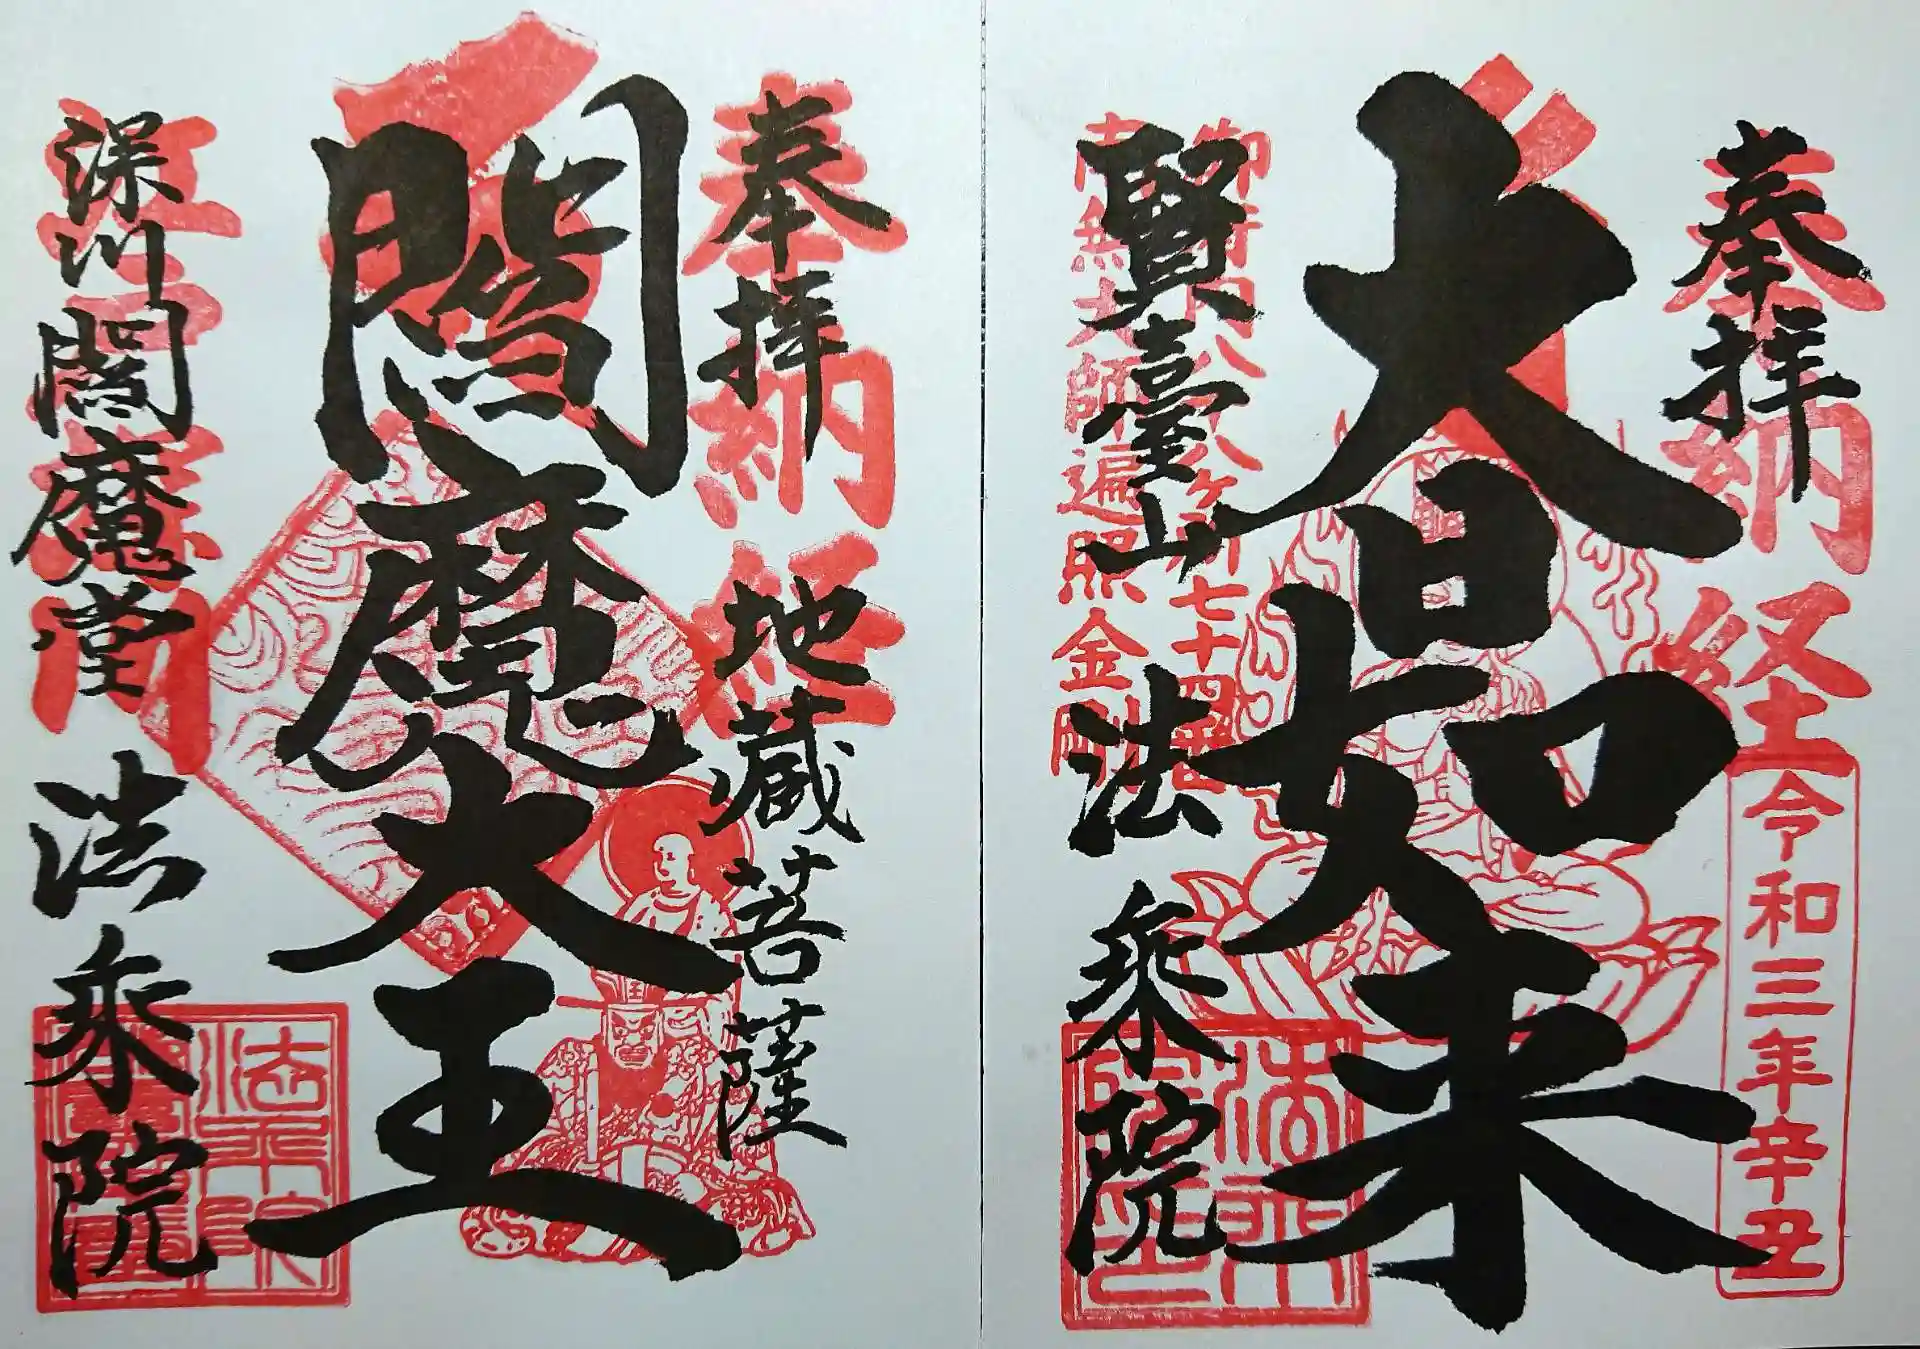 奉拝
奉納経
令和三年辛丑
大日如来
御府内八十八ヶ所七十四番
南無大師遍照金剛
賢臺山
法乗院
法乗院印
奉拝
奉納経
地蔵菩薩
閻魔大王
王
江戸
深川閻魔堂
法乗院
法乗院